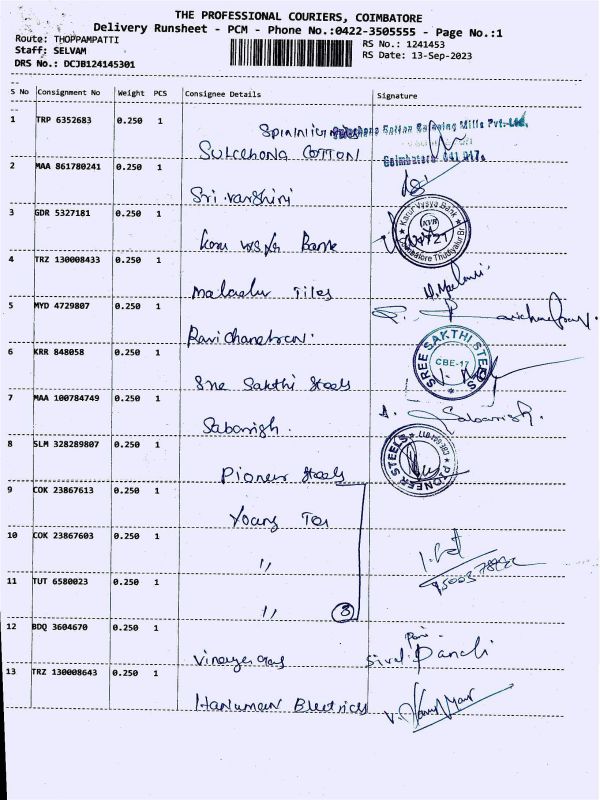 THE PROFESSIONAL COURIERS, COIMBATORE
Delivery Runsheet - PCM - Phone No.:0422-3505555 - Page No.:1
Route: THOPPAMPATTI
RS No.: 1241453
Staff: SELVAM
RS Date: 13-Sep-2023
DRS No.: DCJB124145301
S No Consignment No Weight PCS Consignee Details Signature
1 TRP 6352683 0.250 1
Spinning Mills Pvt.-Ltd.
SULCCHONA COTTON
Coimbatore 641 017.
2 MAA 861780241 0.250 1
Sri varshini
3 GDR 5327181 0.250 1
Karur Vysya Bank
KVB
Coimbatore Thudiyalur Br
Bank
4 TRZ 130008433 0.250 1
Tiles
5 MYD 4729807 0.250 1
Ravichandran.
6 KRR 848058 0.250 1
SREE SAKTHI STEELS
CBE-17
Sree Sakthi Steels
7 MAA 100784749 0.250 1
Sabarish.
Sabarish.
8 SLM 328289807 0.250 1
PIONEER STEELS
Pioneer Steels
9 COK 23867613 0.250 1
Young Tex
10 COK 23867603 0.250 1
"
11 TUT 6580023 0.250 1
" 3
12 BDQ 3604670 0.250 1
13 TRZ 130008643 0.250 1
Hanuman Electricals